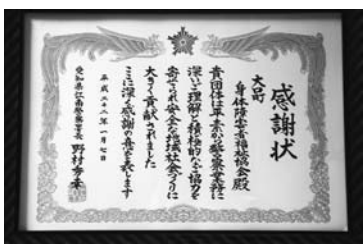 感謝状
大口町
身体障害者福祉協会殿
貴団体は平素から警察業務に
深いご理解と積極的なご協力を
寄せられ安全な地域社会づくりに
大きく貢献されました
ここに深く感謝の意を表します
平成二十八年一月七日
愛知県江南警察署長 野村